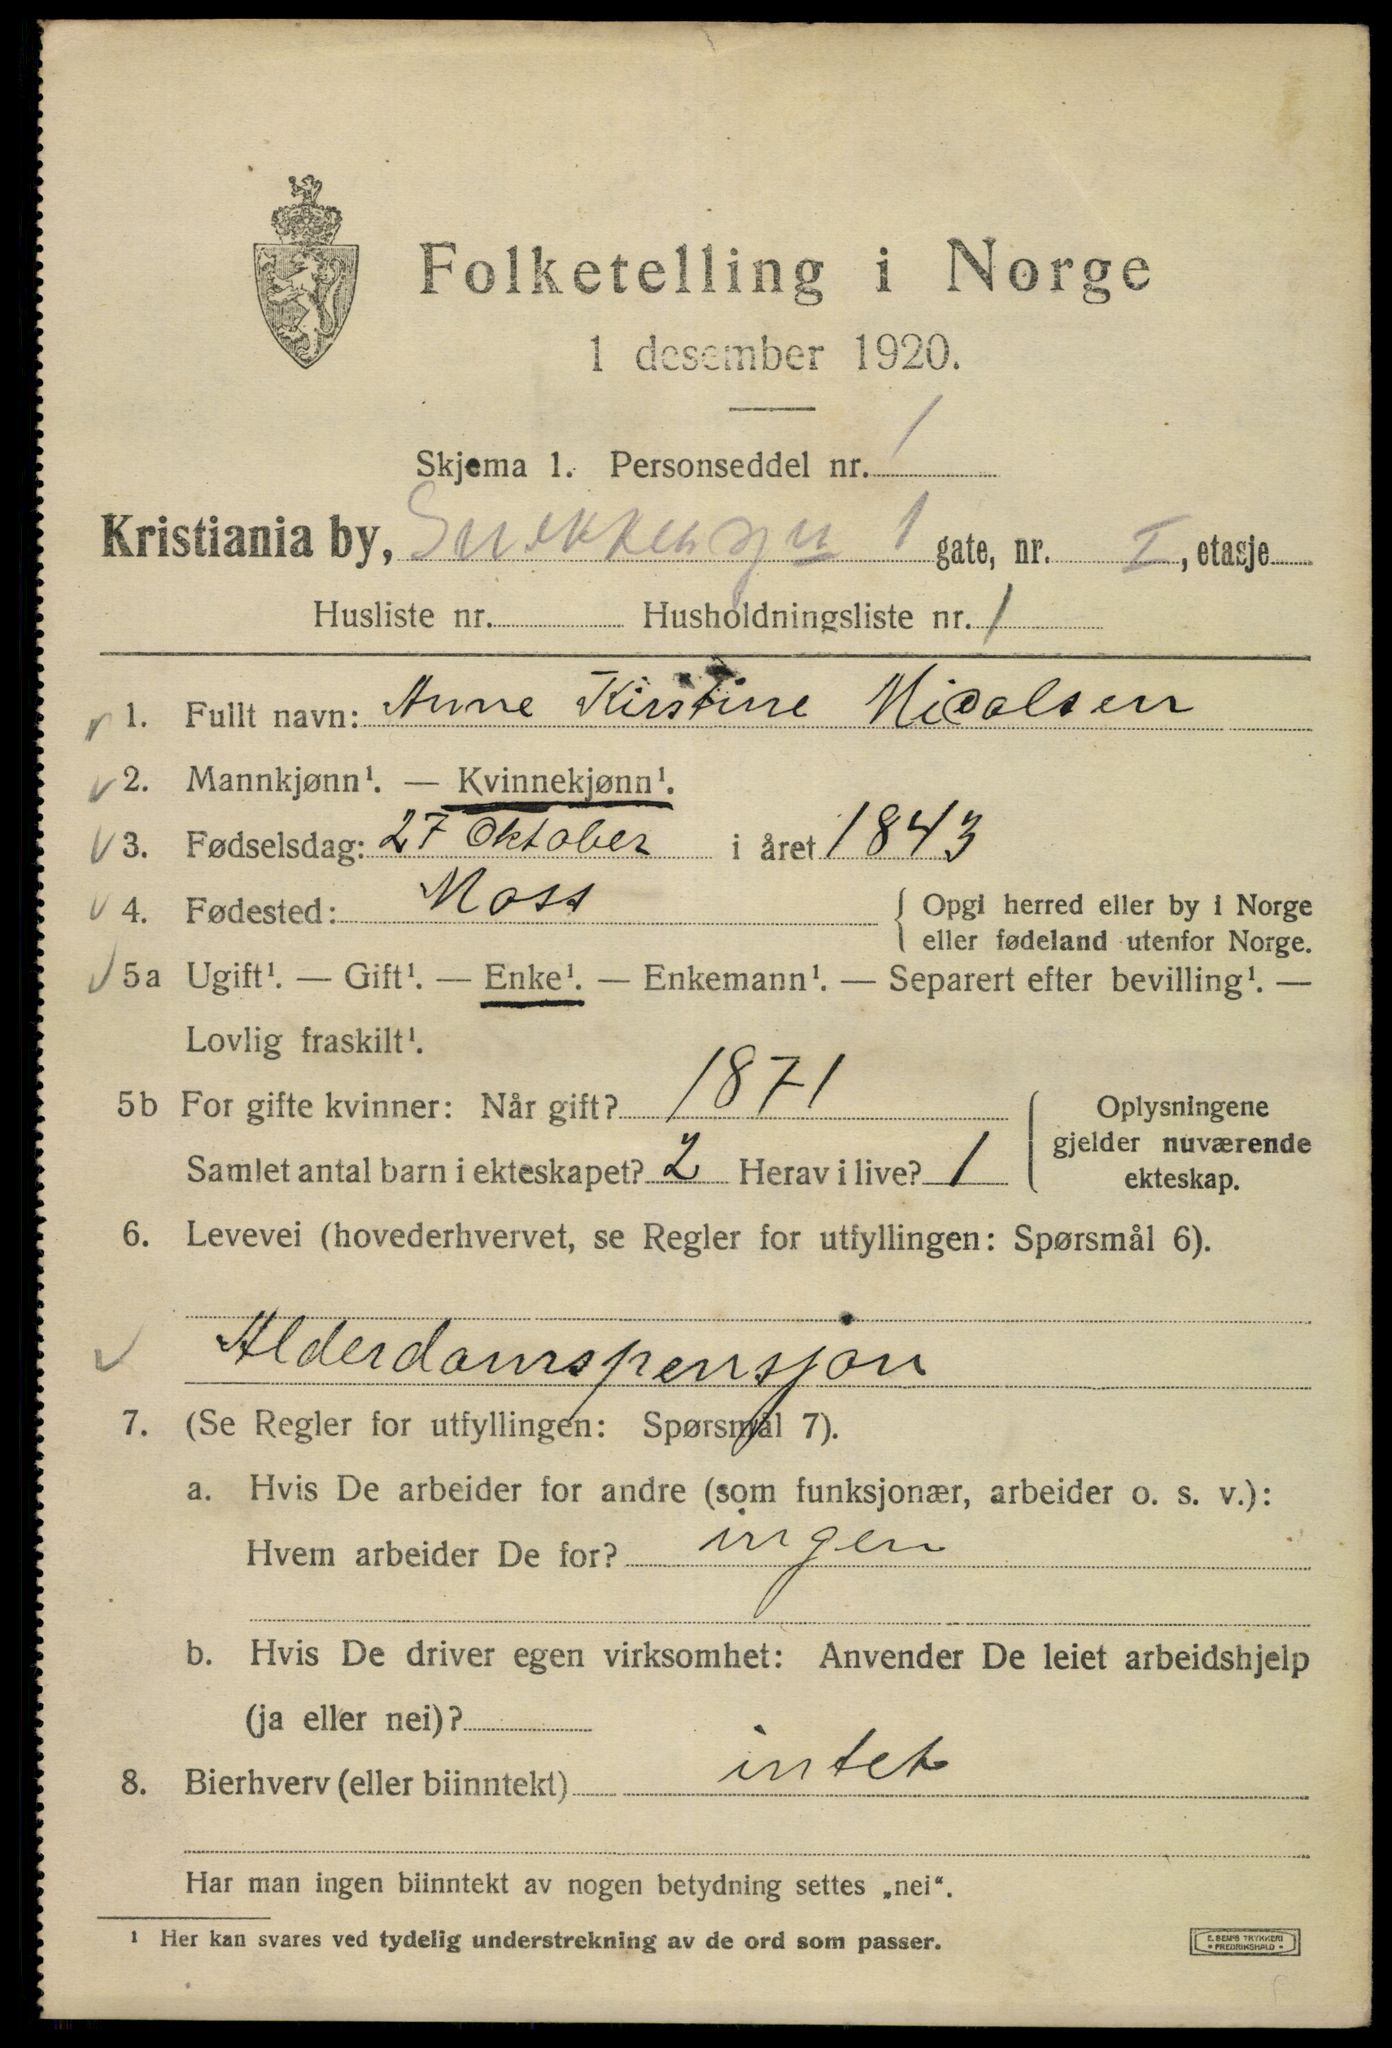 Folketelling i Norge
1 desember 1920.
Skjema 1. Personseddel nr. 1
Kristiania by, 1 gate, nr. I, etasje
Husliste nr. Husholdningsliste nr. 1
1. Fullt navn: Anne Kirstine Nicolsen
2. Mannkjønn¹. — Kvinnekjønn¹.
3. Fødselsdag: 27 Oktober i året 1843
4. Fødested: Moss { Opgi herred eller by i Norge
eller fødeland utenfor Norge.
5a Ugift¹. — Gift¹. — Enke¹. — Enkemann¹. — Separert efter bevilling¹. —
Lovlig fraskilt¹.
5b For gifte kvinner: Når gift? 1871
Samlet antal barn i ekteskapet? 2 Herav i live? 1
Oplysningene
gjelder nuværende
ekteskap.
6. Levevei (hovederhvervet, se Regler for utfyllingen: Spørsmål 6).
Alderdomspensjon
7. (Se Regler for utfyllingen: Spørsmål 7).
a. Hvis De arbeider for andre (som funksjonær, arbeider o. s. v.):
Hvem arbeider De for? ingen
b. Hvis De driver egen virksomhet: Anvender De leiet arbeidshjelp
(ja eller nei)?
8. Bierhverv (eller biinntekt) intet
Har man ingen biinntekt av nogen betydning settes „nei“.
¹ Her kan svares ved tydelig understrekning av de ord som passer.
E. SEM'S TRYKKERI
• FREDRIKSHALD •